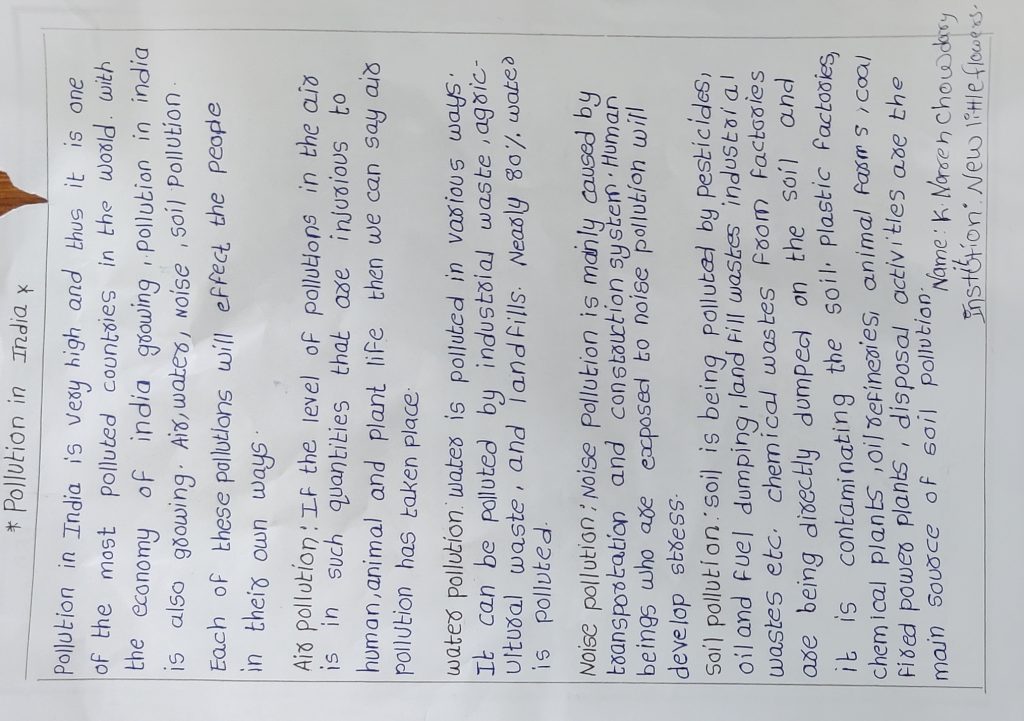 * Pollution in India *
Pollution in India is very high and thus it is one
of the most polluted countries in the world. with
the economy of india growing, pollution in india
is also growing. Air, water, noise, soil pollution.
Each of these pollutions will effect the people
in their own ways.
Air pollution: If the level of pollutions in the air
is in such quantities that are injurious to
human, animal and plant life then we can say air
pollution has taken place.
water pollution: water is polluted in various ways.
It can be polluted by industrial waste, agric-
ultural waste, and landfills. Nearly 80% water
is polluted.
Noise pollution: Noise pollution is mainly caused by
transpotation and construction system. Human
beings who are exposed to noise pollution will
develop stress.
soil pollution: soil is being polluted by pesticides,
oil and fuel dumping, land fill wastes industrial
wastes etc. chemical wastes from factories
are being directly dumped on the soil and
it is contaminating the soil. plastic factories,
chemical plants, oil refineries, animal farms, coal
fired power plants, disposal activities are the
main source of soil pollution.
Name: K. Naren Chowdary
Institution: New little flowers.